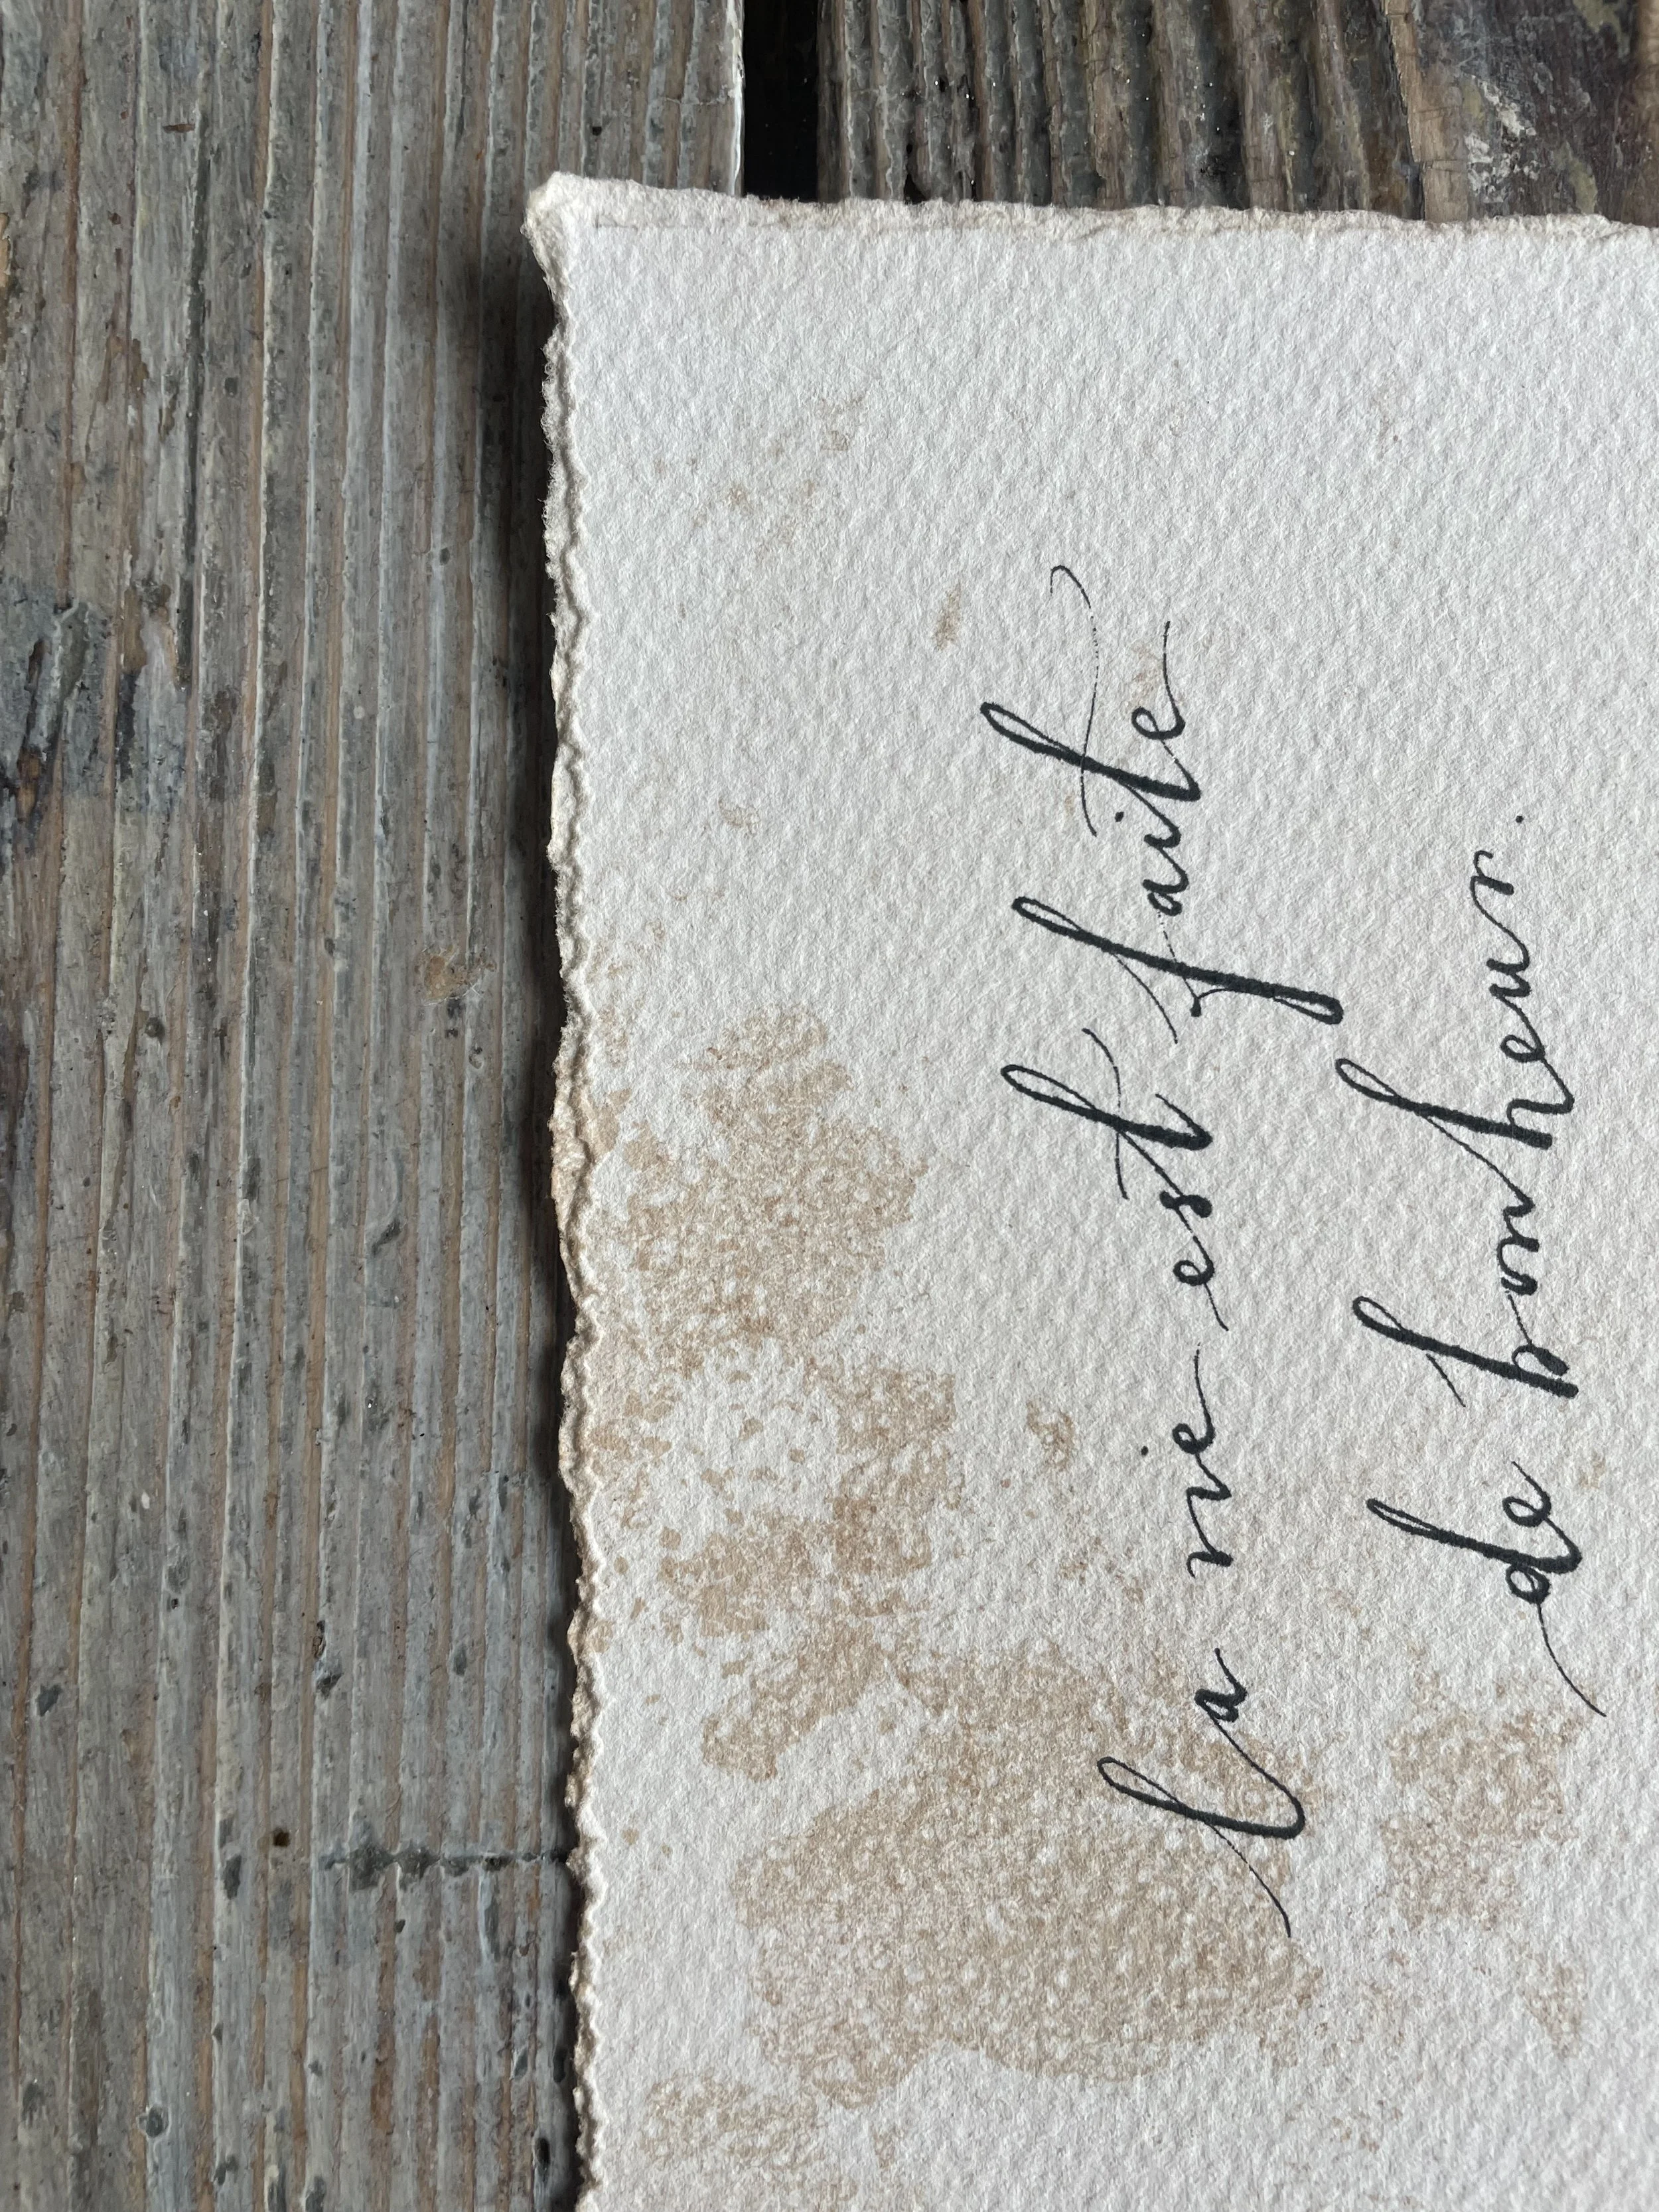 la vie est faite
de bonheur.